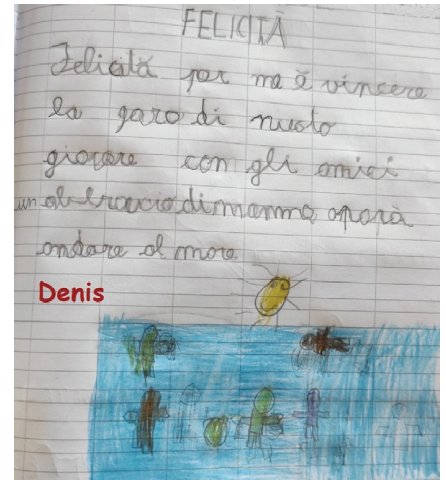 FELICITÀ
Felicità per me è vincere
la garo di nuoto
giocare con gli amici
un abbraccio di mamma e papà
andare al mare
Denis